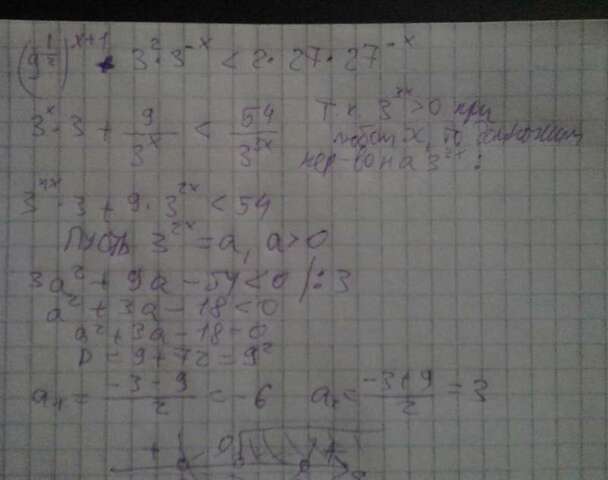 (9^{1/2})^{x+1} + 3^2 · 3^{-x} < 2 · 27 · 27^{-x}
3^x · 3 + 9/3^x < 54/3^{3x}
Т.к 3^{3x} > 0 при
любом x, то
нер-во на 3^{3x}:
3^{4x} · 3 + 9 · 3^{2x} < 54
Пусть 3^{2x} = a, a > 0
3a^2 + 9a - 54 < 0 /: 3
a^2 + 3a - 18 < 0
a^2 + 3a - 18 = 0
D = 9 + 72 = 9^2
a_1 = (-3 - 9)/2 = -6 a_2 = (-3 + 9)/2 = 3
+ 0 - +